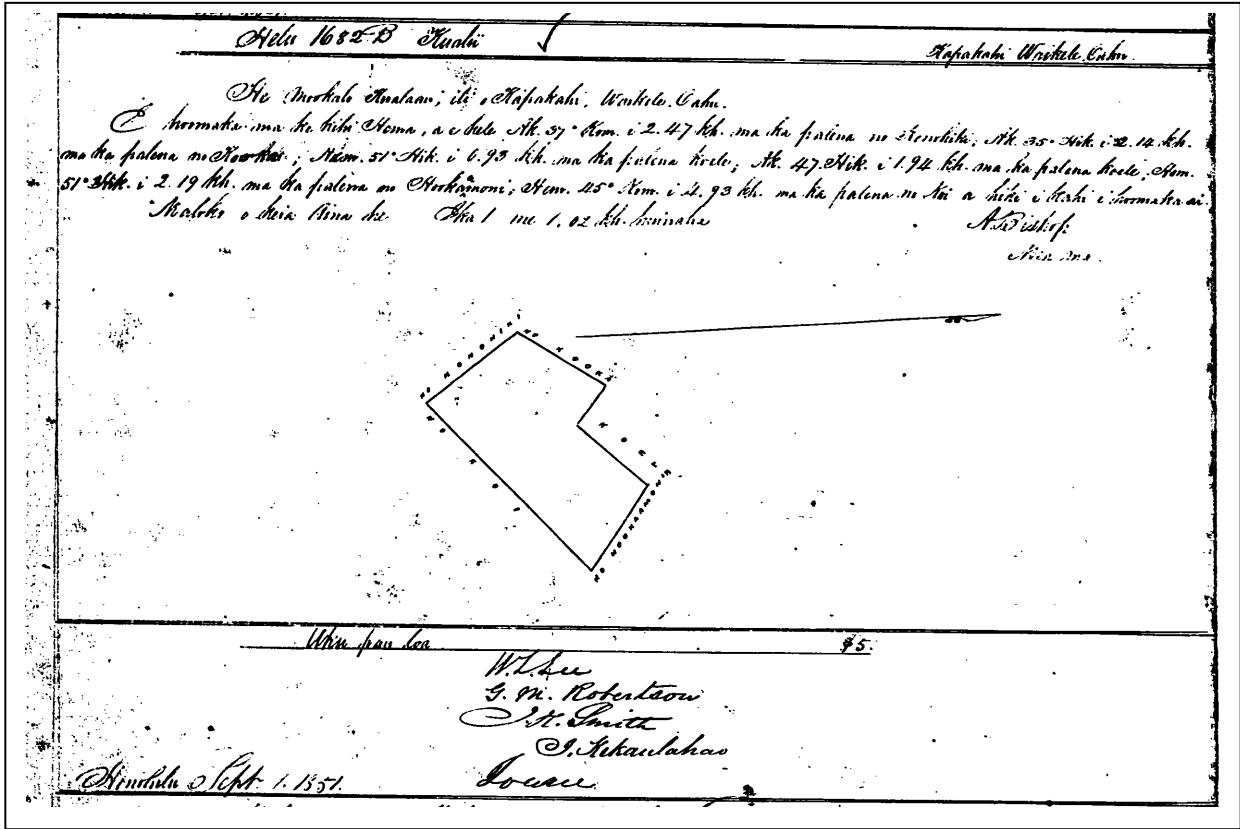 Helu 1682-B Kualii
Kapakahi Waikele Oahu.
He Mookalo Kualaau; ili o Kapakahi, Waikele. Oahu.
E hoomaka ma ke kihi Hema, a e hele Ak. 37° Kom. i 2.47 kh. ma ka palena no Kenohiki; Ak. 35° Hik. i 2.14 kh.
ma ka palena no Kooka; Hem. 51° Hik. i 0.93 kh. ma ka palena koele; Ak. 47. Hik. i 1.94 kh. ma ka palena koele; Hem.
51° Hik. i 2.19 kh. ma ka palena no Hookamoni; Hem. 45° Kom. i 4.93 kh. ma ka palena no Koi a hiki i kahi i hoomaka ai.
Maloko o keia Aina he Eka 1 me 1.02 kh. huinaha
A. Bishop
Nana ana.
NO KONOHIKI
NO KOOKA
KOELE
NO HOOKAAMONI
NO KOI
Uku pau loa $5.
W. L. Lee
G. M. Robertson
J. H. Smith
J. Kekaulahao
Honolulu Sept. 1. 1851.